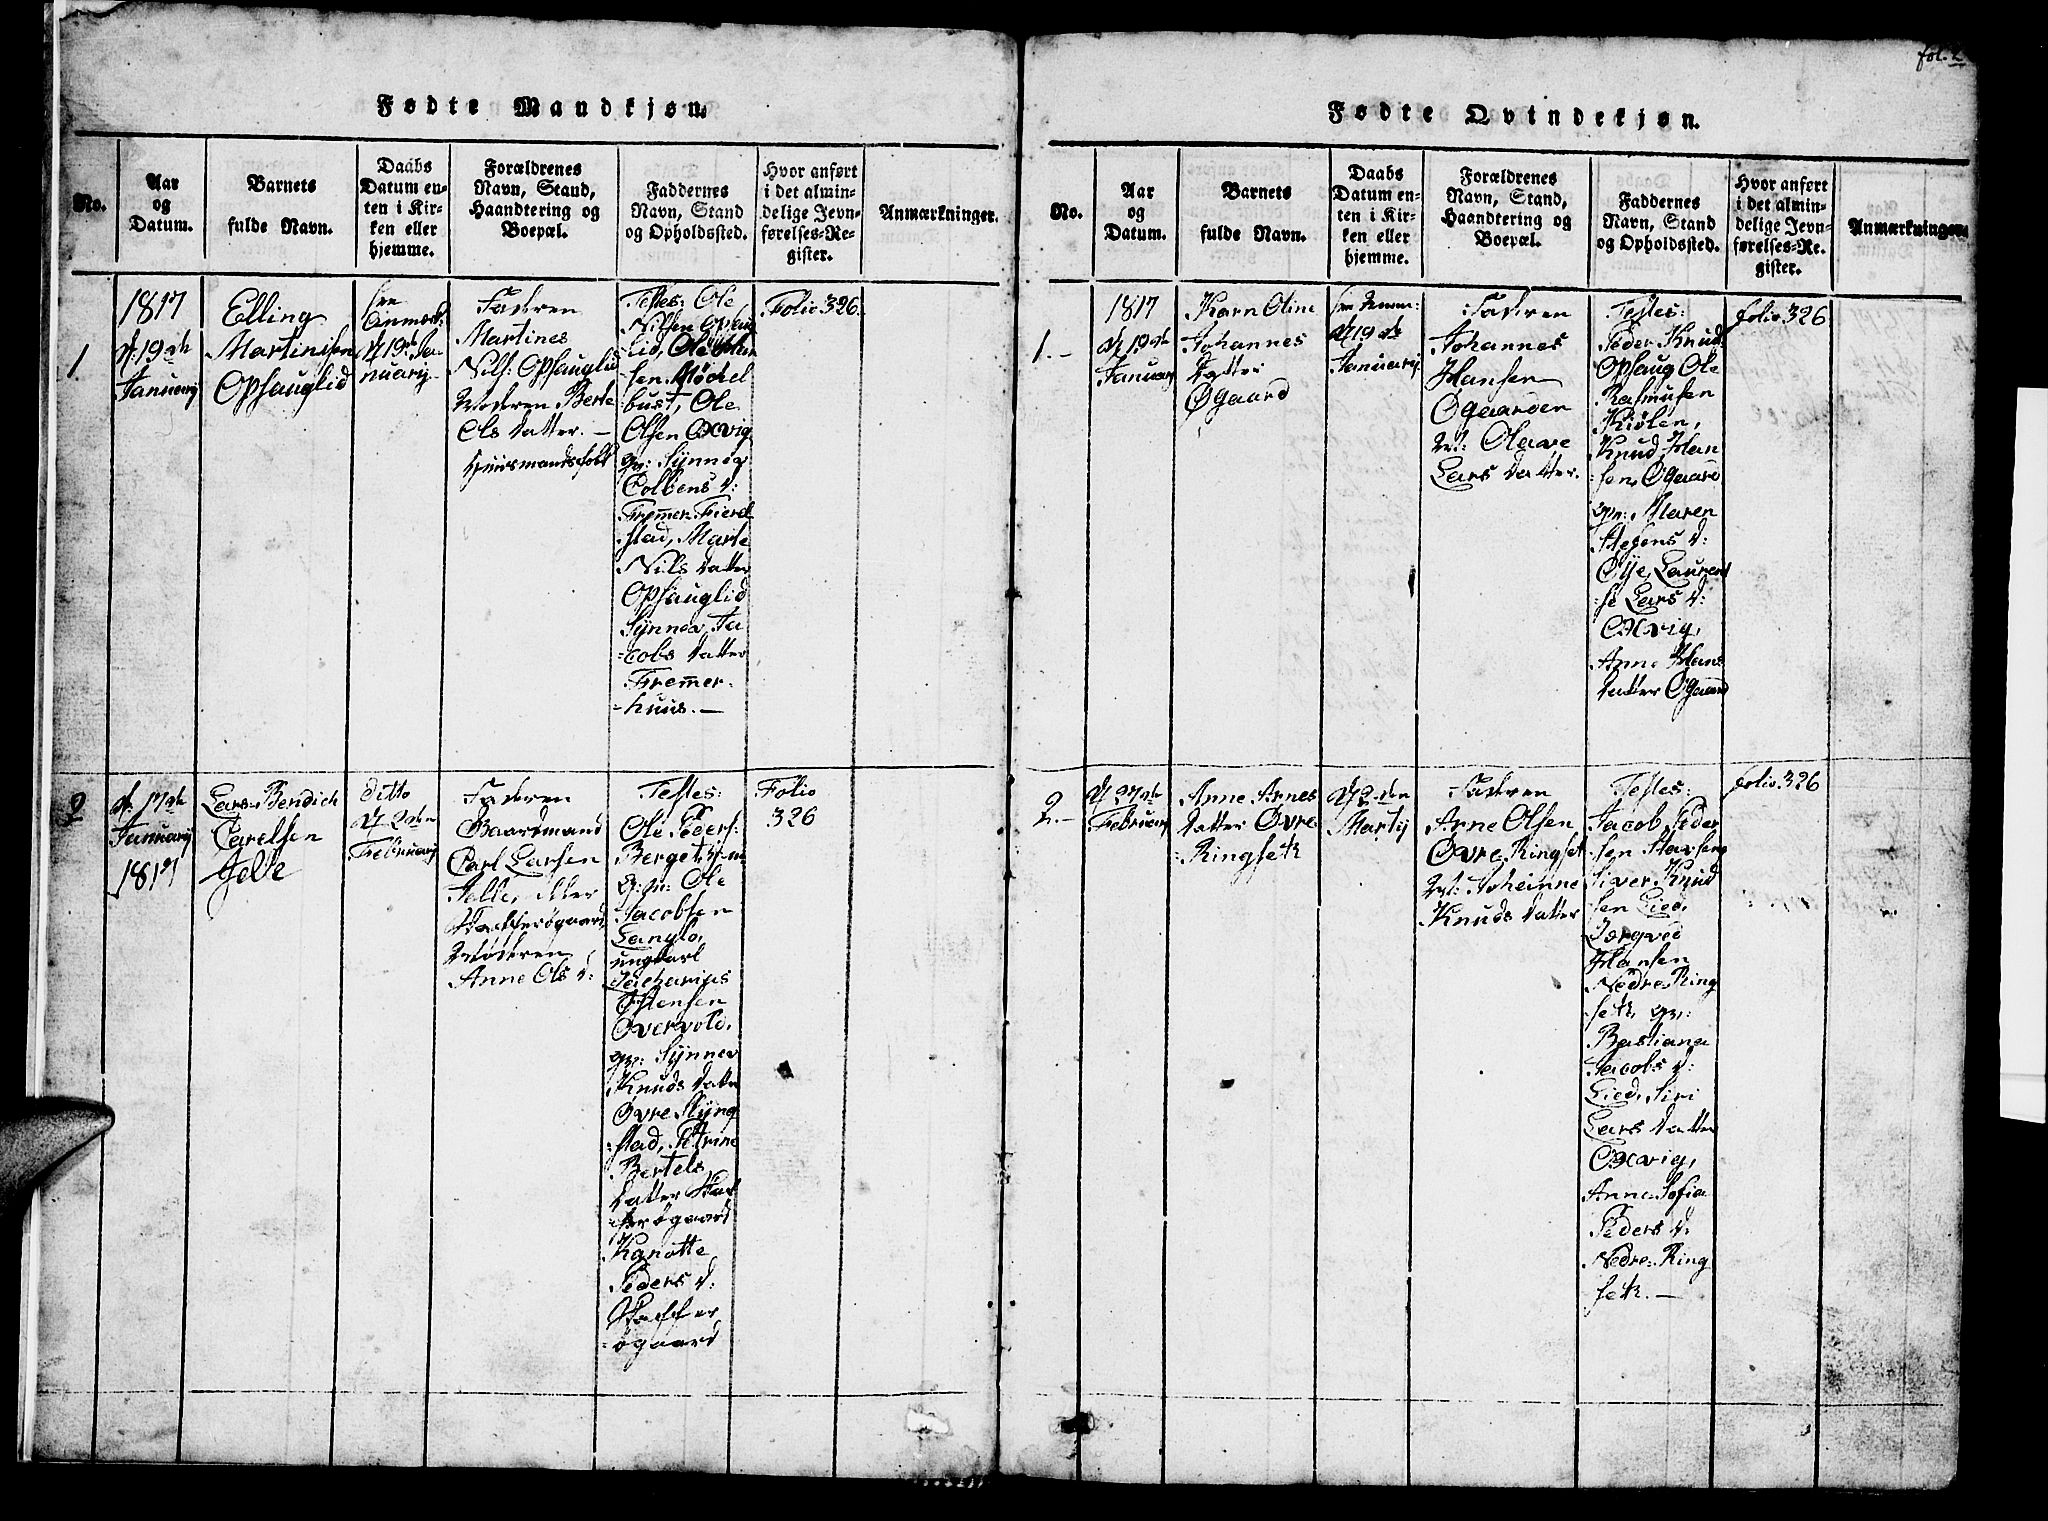 fol. 2
Fødte Mandkjøn.
No.
Aar
og
Datum.
Barnets
fulde Navn.
Daabs
Datum en-
ten i Kir-
ken eller
hjemme.
Forældrenes
Navn, Stand,
Haandtering og
Boepæl.
Faddernes
Navn, Stand
og Opholdssted.
Hvor anført
i det almin-
delige Jevn-
førelses-Re-
gister.
Anmærkninger.
1
1817
d: 19de
Januarij
Elling
Martinisen
Opsauglid
19de Ja-
nuarij
Faderen
Martines
Nils: Opsauglid
Moderen Berte
Ols Datter. —
Huusmandsfolk
Testes: Ole
Nilsen Opsaug
lid, Ole Johan
sen Mochel
bust, Ole
Olsen Oxvig
qv: Synnev
Colbens d:
Fremer Fierel
stad, Marte
Nils Datter
Opsauglid
Synnev Ja
=cobs Datter
Fremer-
=huus. —
Folio 326
2
d: 17de
Januarij
1817
Lars Bendich
Carelsen
Jelle
ditto
d 2den
Februarij
Faderen
Gaardmand
Carl Larsen
Jelle, eller
Stafferøgaard,
Moderen
Anne Ols d:
Testes:
Ole Peders:
Berget,
Ole
Jacobsen
Langlo,
ungkarl
Zacharias
Østensen
Overvold,
qv: Synnev
Knuds Datter
Øvre Slyng
stad, Petrine
Bertels
Datter Staf
ferøgaard
Kanutte
Peders d:
Staffer
=øgaard
Folio
326
Fødte Qvindekjøn.
No.
Aar
og
Datum.
Barnets
fulde Navn.
Daabs
Datum en-
ten i Kir-
ken eller
hjemme.
Forældrenes
Navn, Stand,
Haandtering og
Boepæl.
Faddernes
Navn, Stand
og Opholdssted.
Hvor anført
i det almin-
delige Jevn-
førelses-Re-
gister.
Anmærkninger.
1. —
1817
d 19de
Januarij
Karn Oline
Johannes
Datter
Øgaard
d 19de
Januarij
Faderen
Johannes
Hansen
Øgaarden
M: Olave
Lars Datter.
Testes:
Peder Knud
Opsaug Ole
Rasmusen
Kiølen,
Knud Han
sen Øgaard
qv: Maren
Stefens d:
Øye, Laurent
se Lars d:
Oxvig,
Anne Hans
Datter Øgaard
folio 326
2. —
d 27de
Februarij
Anne Arnes
Datter Øvre
Ringseth
d 2den
Martij
Faderen
Arne Olsen
Øvre Ringset
M: Joheinne
Knuds Datter
Testes:
Jacob Peder
sen Stavseng
Siver Knud
sen Lied,
Ingved
Hansen
Nedre Ring
seth, qv:
Bastiana
Jacobs d:
Lied, Siri
Lars Datter
Oxvig,
Anne Sofia
Peders d:
Nedre Ring
seth. —
folio 326